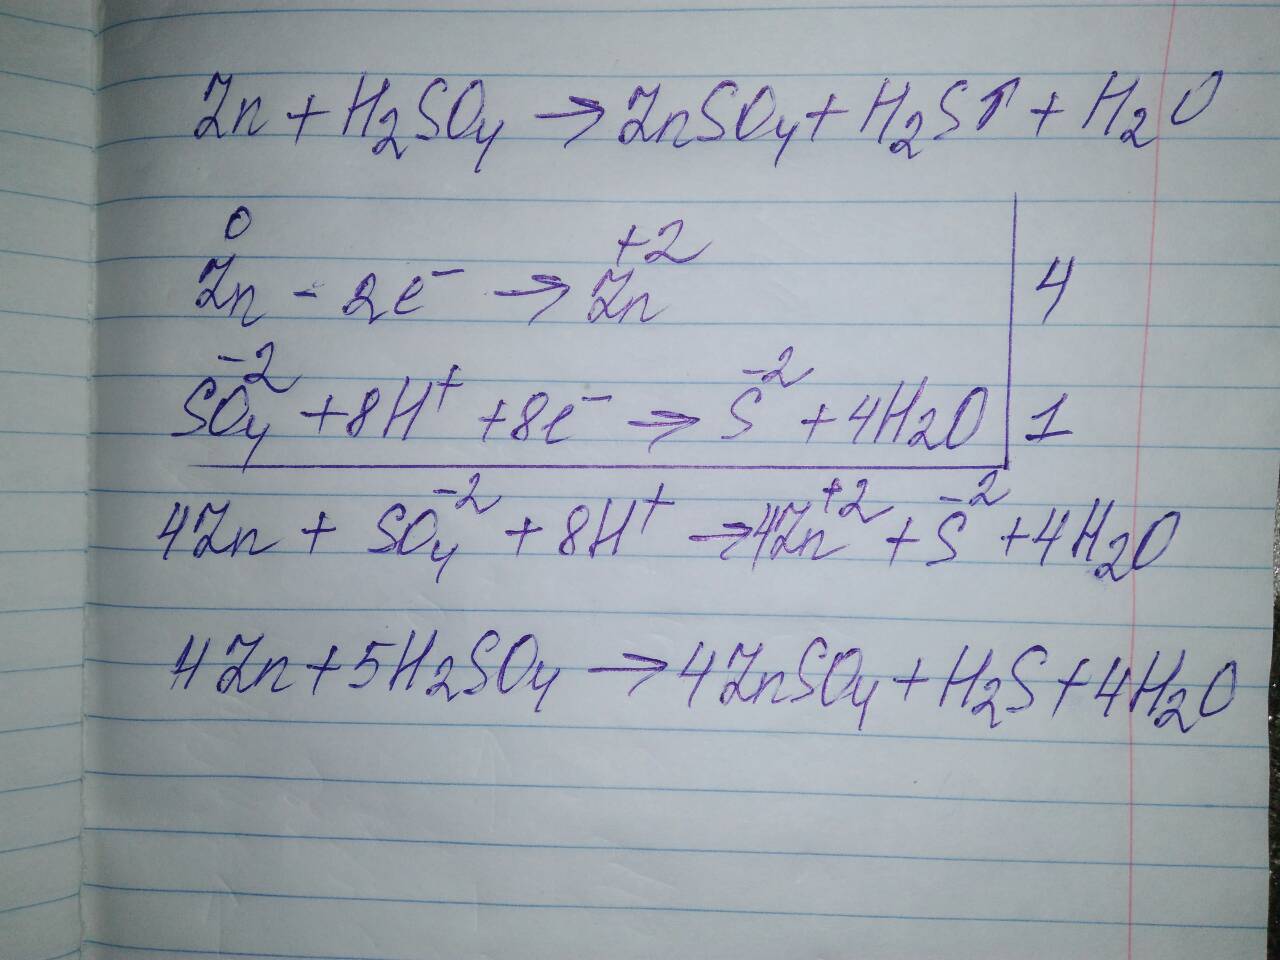 Zn + H₂SO₄ → ZnSO₄ + H₂S↑ + H₂O
Zn⁰ - 2e⁻ → Zn⁺² | 4
SO₄⁻² + 8H⁺ + 8e⁻ → S⁻² + 4H2O | 1
4Zn + SO₄⁻² + 8H⁺ → 4Zn⁺² + S⁻² + 4H₂O
4Zn + 5H₂SO₄ → 4ZnSO₄ + H₂S + 4H₂O